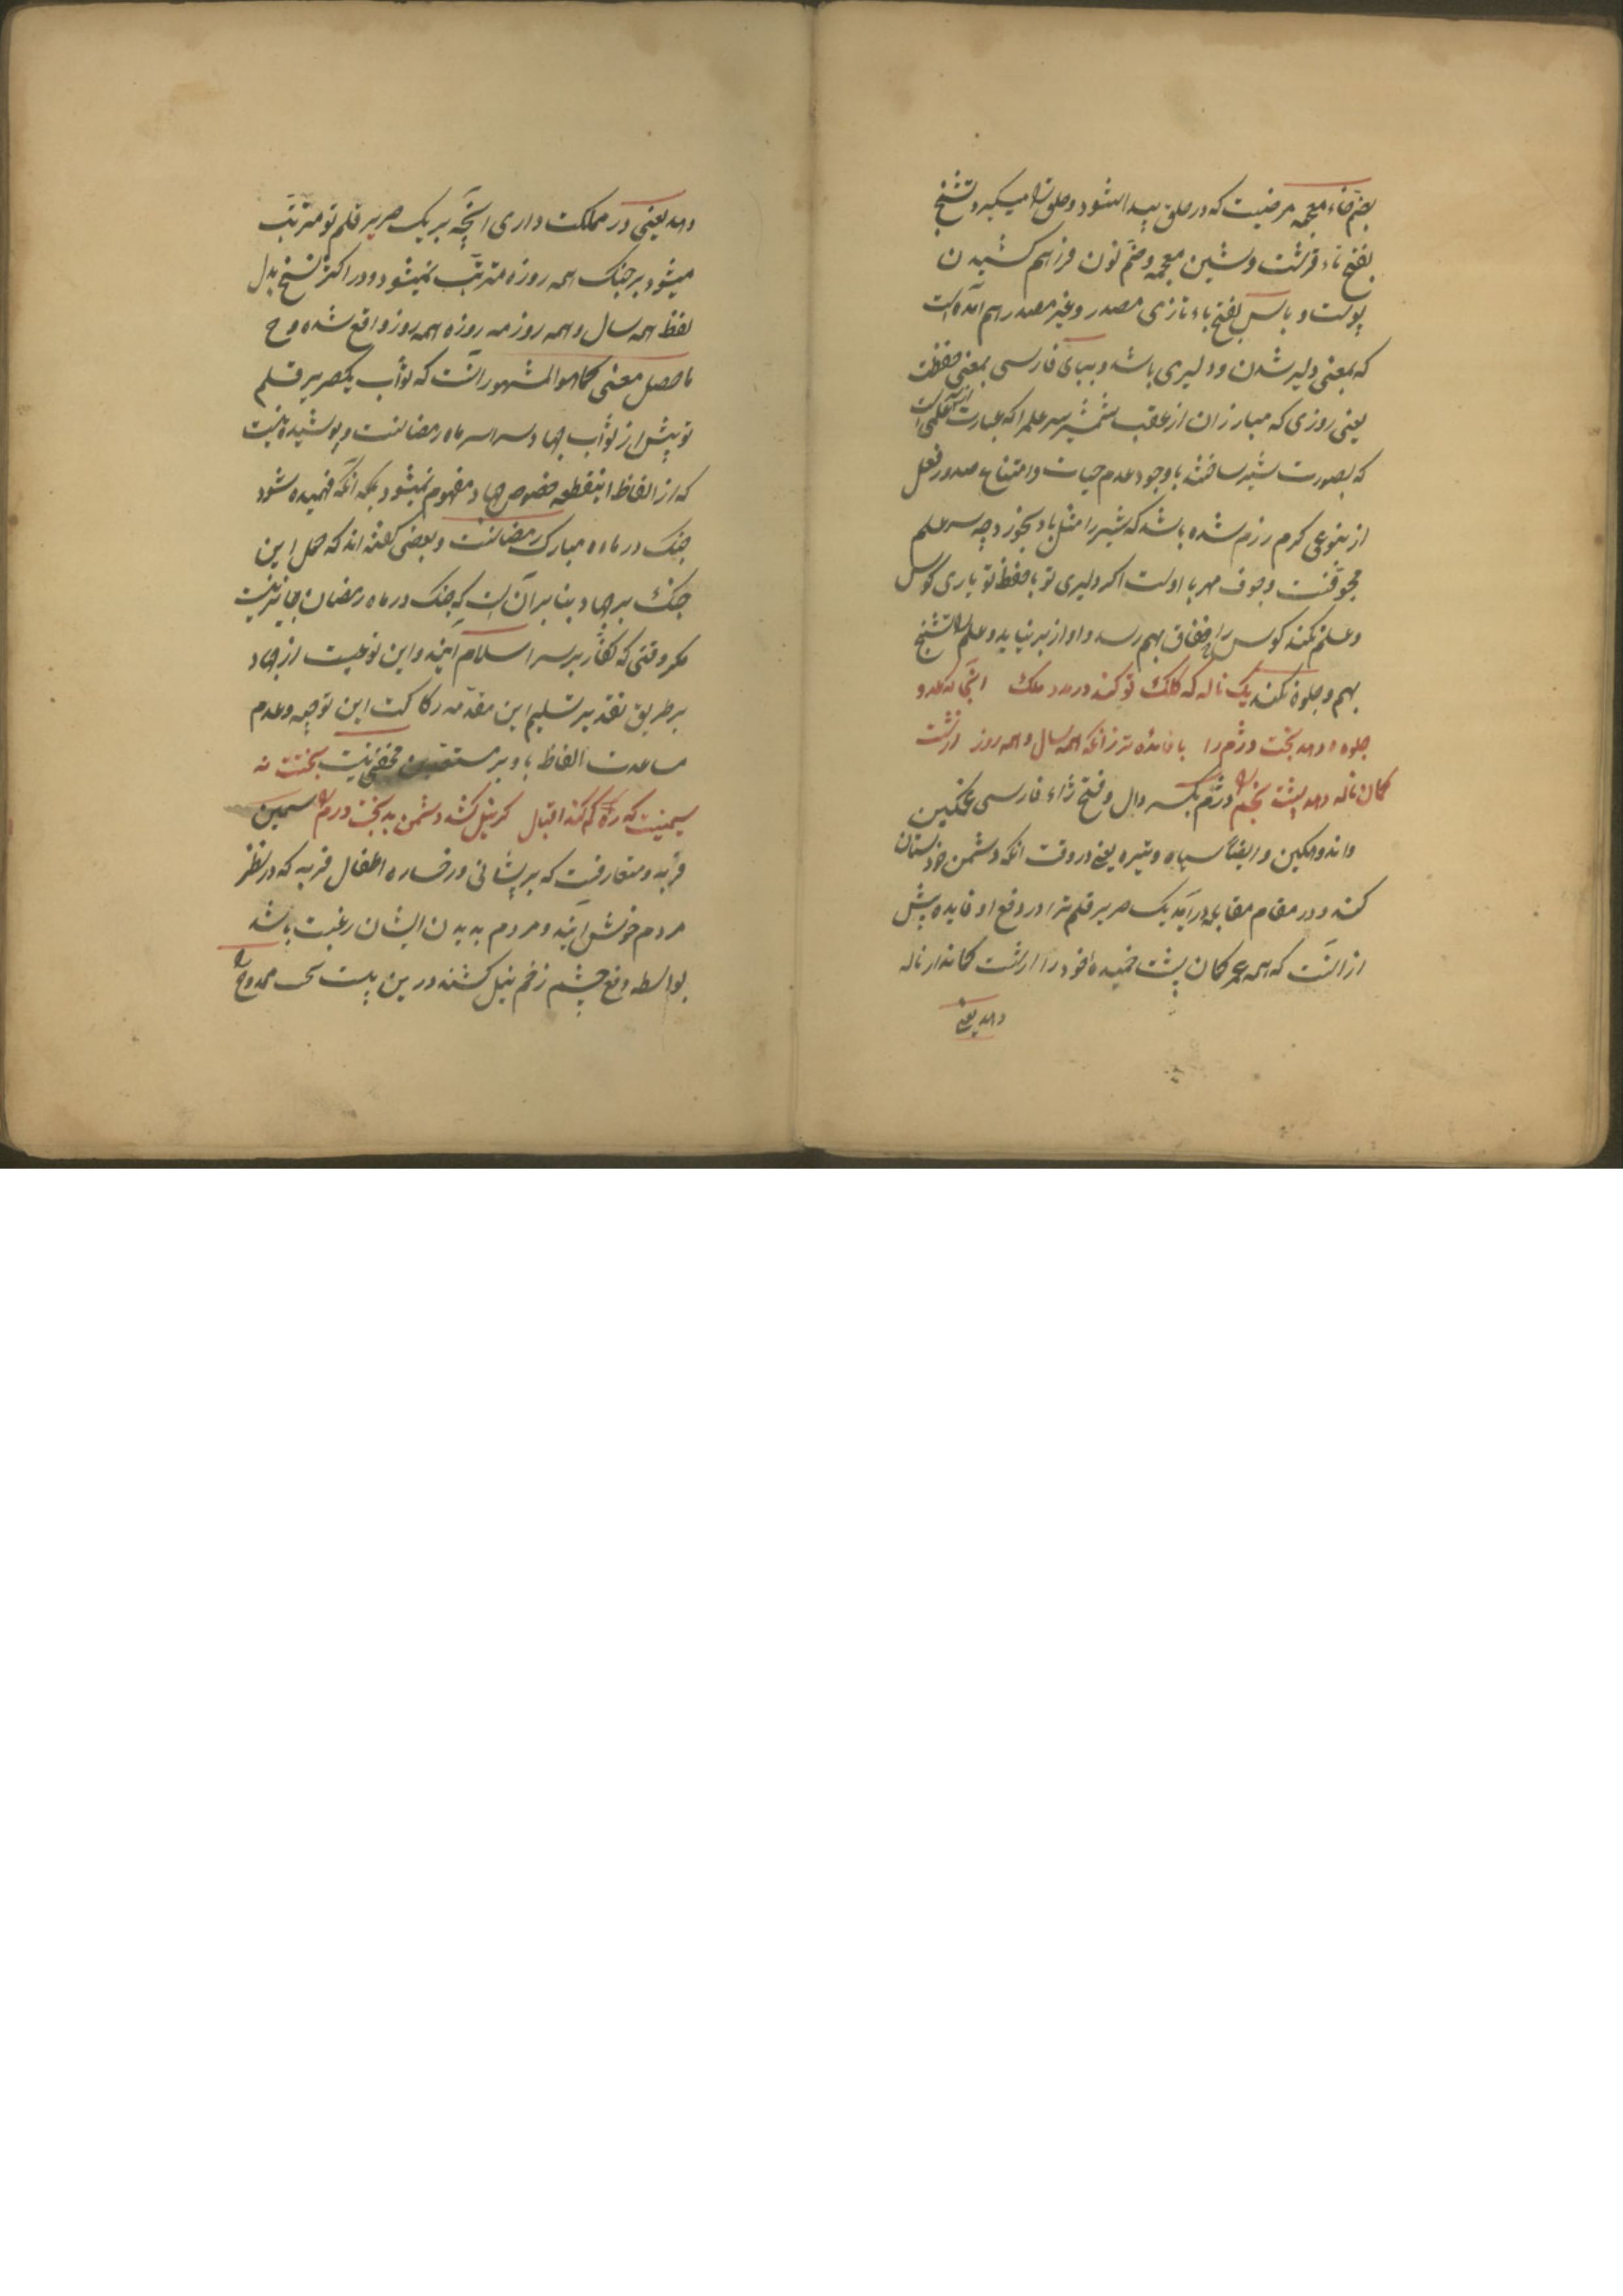 بضم خاء معجمه مرضیست که در حلق پیدا شود و حلق را میگیرد و تشنج
بفتح تاء قرشت و شین معجمه و ضم نون فراهم کشیدن
پوست و باس بفتح باء تازی مصدر و غیر مصدر هم آمده است
که بمعنی دلیر شدن و دلیری باشد و ببای فارسی بمعنی حفظت
یعنی روزی که مبارزان از عقب شمشیر سر علم را که عبارت از علمی است
که بصورت شیر ساختند با وجود عدم حیات و امتناع صدور فعل
از بنوعی کرم رزم شده باشد که شیر را مثل باد بخورد چه سر علم
مجوفست وجوف مهر با اوست اکر دلیری تو با حفظ تو یاری کوس
و علم نکند کوس را خناق بهم رسد و آواز بر نیاید و علم را تشنج
بهم و جلوه نکند یک ناله که کلک تو کند در مدد ملک آنجا که عدو
جلوه دهد بخت دژم را با فائده تر زانکه همه سال و همه روز از پشت
کمان ناله دهد پشت بخم دژم بکسر دال و فتح ژاء فارسی غمکین
و اندوهکین و ایضا سیاه و تیره یعنی در وقت آنکه دشمن خودستان
کند و در مقام مقابله درآید یک صریر قلم ترا در دفع او فایده بیش
از آنست که همه عمر کمان پشت خمیده خود را از پشت کماندار ناله
دهد یعنی
دهد یعنی در مملکت داری آنچه بر یک صریر قلم تو مترتب
میشود بر جنک همه روزه مترتب نمیشود و در اکثر نسخ بدل
لفظ همه سال و همه روز مه روزه همه روز واقع شده و ح
ماحصل معنی کما هو المشهور آنست که ثواب یکصریر قلم
تو بیش از ثواب جهاد سراسر ماه رمضانست و پوشیده نیست
که از الفاظ اینقطعه خصوص جهاد مفهوم نمیشود بلکه آنکه فهمیده شود
جنک در ماه مبارک رمضانست و بعضی گفته اند که حمل این
جنک بر جهاد بنا بر آن است که جنک در ماه رمضان جایز نیست
مکر وقتی که کفار بر سر اسلام آیند و این نوعیست از جهاد
بر طریق تقدیر تسلیم این مقدمه رکاکت این توجیه و عدم
مساعدت الفاظ باو بر مستفیدین مخفی نیست بختت نه
سمینیست که ره کم کند اقبال کر نیل کشد دشمن بدبخت ورم را سمین
فربه و متعارفست که بر پیشانی و رخساره اطفال فربه که در نظر
مردم خوش آیند و مردم بدیدن ایشان رغبت باشد
بواسطه دفع چشم زخم نیل کشند درین بیت بخت ممدوح را